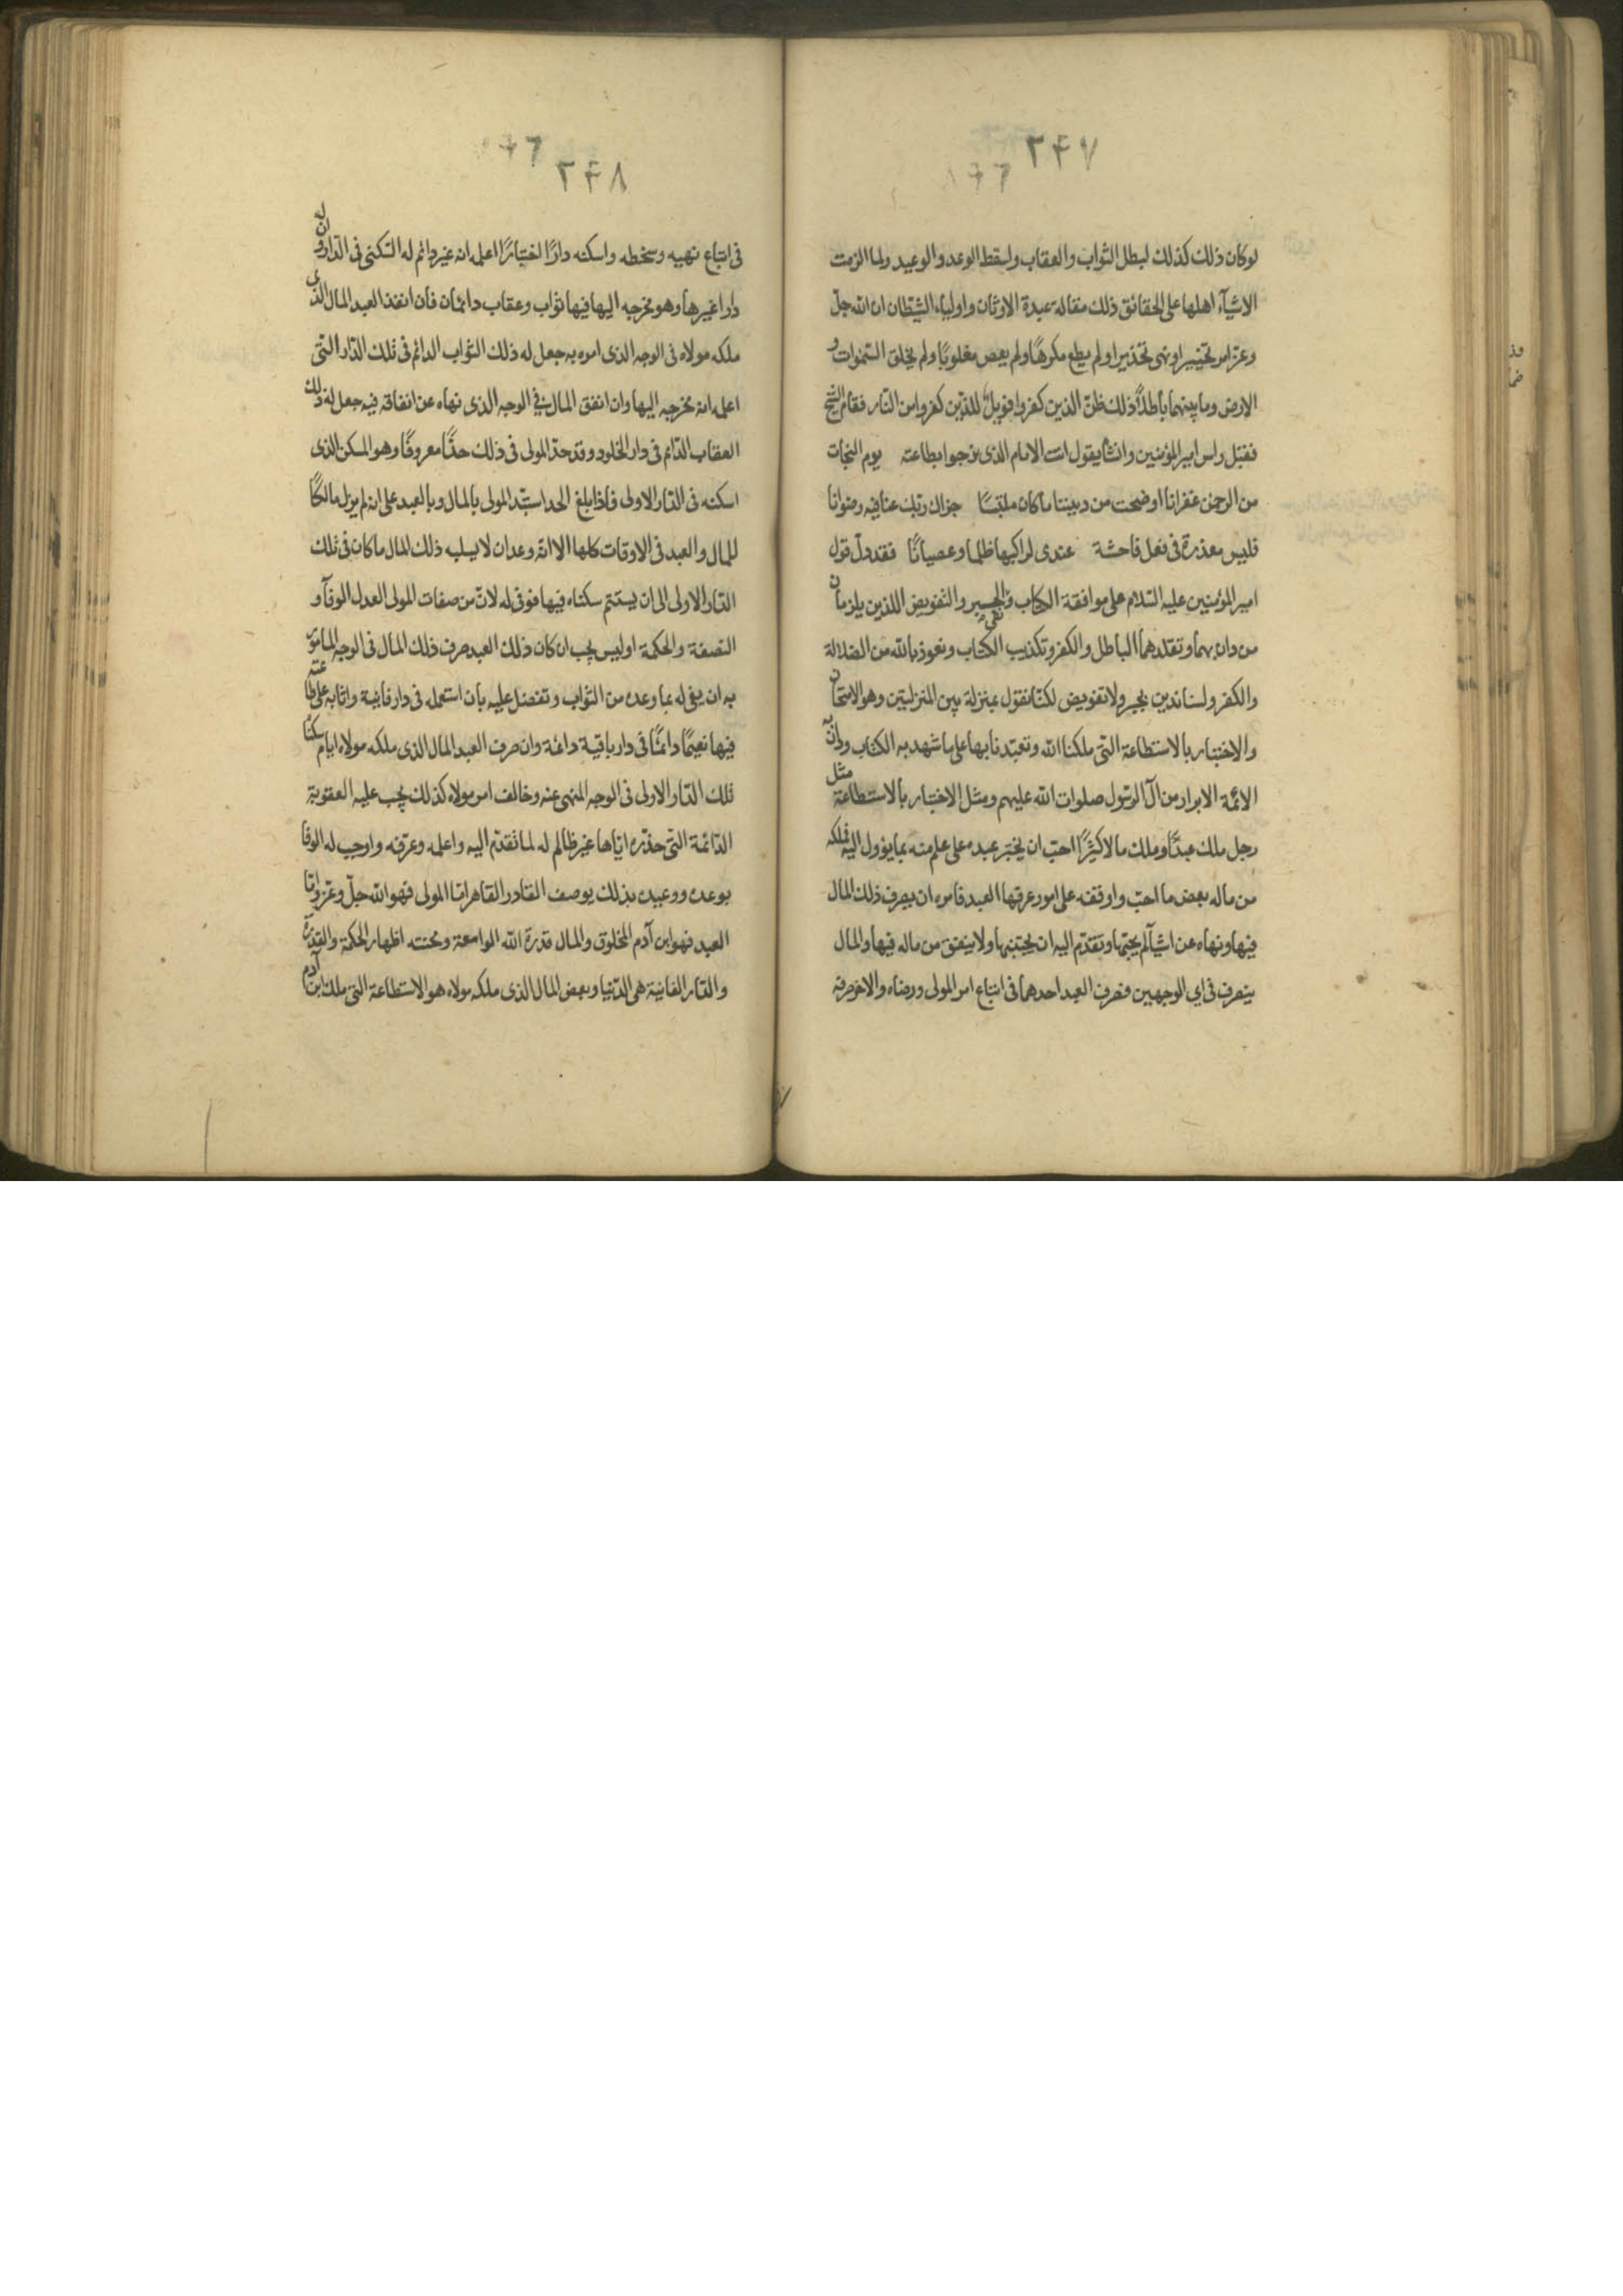 ٢۴٧
لو كان ذلك كذلك لبطل الثواب والعقاب ولسقط الوعد والوعيد ولما الزمت
الاشيآء اهلها على الحقائق ذلك مقالة عبدة الاوثان واولياء الشيطان ان الله جلّ
وعزّ امر تخييرا ونهى تحذيرا ولم يطع مكرهًا ولم يعص مغلوبًا ولم يخلق السّموات و
الارض وما بينهما باطلاً ذلك ظنّ الذين كفروا فويلٌ للذين كفروا من النار فقام الشيخ
فقبّل راس امير المؤمنين وانشا يقول انت الامام الذى نرجوا بطاعته يوم النجات
من الرحمن غفرانا اوضحت من ديننا ما كان ملتبسًا جزاك ربّك عنا فيه رضوانا
فليس معذرة فى فعل فاحشة عندى لراكبها ظلما وعصيانًا فقد دلّ قول
امير المؤمنين عليه السّلام على موافقة الكتاب ونفى الجبر والتفويض اللذين يلزمان
من دان بهما وتقلدهما الباطل والكفر وتكذيب الكتاب ونعوذ بالله من الضلالة
والكفر ولسنا ندين بجبر ولا تفويض لكنّا نقول بمنزلة بين المنزلتين وهو الامتحان
والاختبار بالاستطاعة التّى ملكنا الله وتعبّدنا بها على ما شهد به الكتاب ودان به
الائمّة الابرار من آل الرسّول صلوات الله عليهم ومثل الاختبار بالاستطاعة مثل
رجل ملك عبدًا وملك مالا كثيرًا احبّ ان يختبر عبده على علم منه بما يؤول اليه فملكه
من ماله بعض ما احبّ واوقفه على امور عرفها العبد فامره ان يصرف ذلك المال
فيها ونهاه عن اشيآء لم يحبّها وتقدّم اليه ان يجتنبها ولا ينفق من ماله فيها والمال
يتصرف فى اى الوجهين فصرف العبد احدهما فى اتباع امر المولى ورضاه والاخر صرفه
٢۴٨
فى اتباع نهيه وسخطه واسكنه دارًا اختبارًا اعلمه انه غير دائم له السّكنى فى الدّار وان له
دارا غيرها وهو مخرجه اليها فيها ثواب وعقاب دائمان فان انفذ العبد المال الذى
ملكه مولاه فى الوجه الذى امره به جعل له ذلك الثواب الدائم فى تلك الدّار التّى
اعلمه انه مخرجه اليها وان انفق المال فى الوجه الذى نهاه عن انفاقه فيه جعل له ذلك
العقاب الدّائم فى دار الخلود وقد حدّ المولى فى ذلك حدًّا معروفًا وهو المسكن الذى
اسكنه فى الدّار الاولى فاذا بلغ الحد استبدّ المولى بالمال وبالعبد على انه لم يزل مالكًا
للمال والعبد فى الاوقات كلها الا انه وعد ان لا يسلبه ذلك المال ما كان فى تلك
الدّار الاولى الى ان يستتم سكناه فيها فوفى له لانّ من صفات المولى العدل الوفآء و
النصفة والحكمة اوليس يجب ان كان ذلك العبد صرف ذلك المال فى الوجه المامور
به ان يفى له بما وعده من الثواب وتفضل عليه بان استعمله فى دار فانية واثابه على طاعته
فيها نعيمًا دائمًا فى دار باقية دائمة وان صرف العبد المال الذى ملكه مولاه ايام سكناه
تلك الدّار الاولى فى الوجه المنهى عنه وخالف امر مولاه كذلك يجب عليه العقوبة
الدّائمة التّى حذّره ايّاها غير ظالم له لما تقدّم اليه واعلمه وعرّفه واوجب له الوفا
بوعده ووعيده بذلك يوصف القادر القاهر امّا المولى فهو الله جلّ وعزّ وامّا
العبد فهو ابن آدم المخلوق والمال قدرة الله الواسعة ومحنته اظهار الحكمة والقدرة
والدّار الفانية هى الدّنيا وبعض المال الذى ملكه مولاه هو الاستطاعة التى ملك ابن آدم